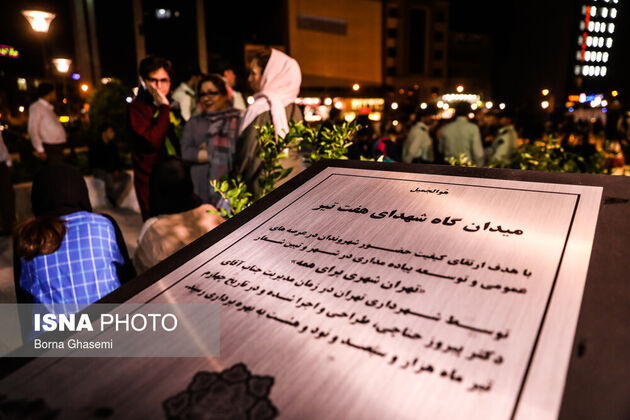 هوالجمیل
میدان گاه شهدای هفت تیر
با هدف ارتقای کیفیت حضور شهروندان در عرصه های
عمومی و توسعه پیاده مداری در شهر و تبین شعار
«تهران شهری برای همه»
توسط شهرداری تهران در زمان مدیریت جناب آقای
دکتر پیروز حناجی، طراحی و اجرا شده و در تاریخ چهارم
تیر ماه هزار و سیصد و نود و هشت به بهره برداری رسید.
ISNA PHOTO
Borna Ghasemi